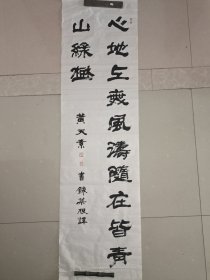 心地上無風濤隨在皆青
山綠樹
天業 書錄菜根譚